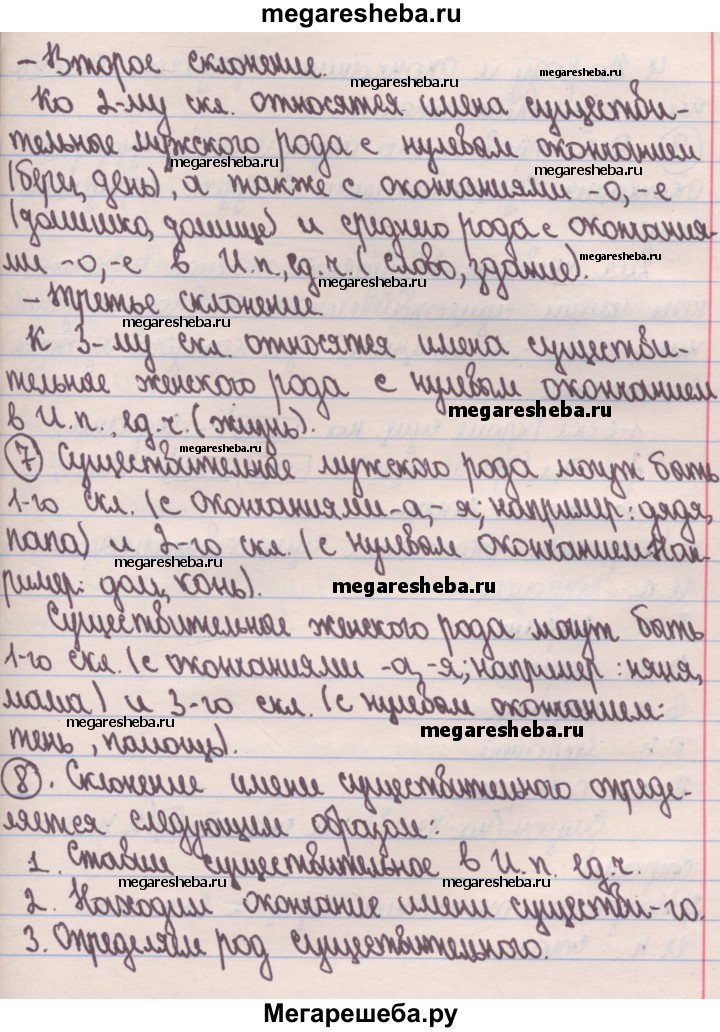 megaresheba.ru
– Второе склонение.
megaresheba.ru
megaresheba.ru
Ко 2-му скл. относятся имена существи-
тельные мужского рода с нулевым окончанием
megaresheba.ru
megaresheba.ru
(берег, день), а также с окончаниями -о, -е
(домишко, домище) и среднего рода с окончания-
ми -о, -е в И.п., ед.ч. (слово, здание).
megaresheba.ru
– Третье склонение.
megaresheba.ru
К 3-му скл. относятся имена существи-
тельные женского рода с нулевым окончанием
в И.п., ед.ч. (жизнь).
megaresheba.ru
megaresheba.ru
7 Существительные мужского рода могут быть
1-го скл. (с окончаниями -а, -я; например: дядя,
megaresheba.ru
папа) и 2-го скл. (с нулевым окончанием: нап-
megaresheba.ru
ример: дом, конь).
megaresheba.ru
Существительные женского рода могут быть
1-го скл. (с окончаниями -а, -я; например: няня,
мама) и 3-го скл. (с нулевым окончанием:
megaresheba.ru
megaresheba.ru
тень, помощь).
8. Склонение имени существительного опреде-
ляется следующим образом:
1. Ставим существительное в И.п. ед.ч.
megaresheba.ru
megaresheba.ru
2. Находим окончание имени существи-го.
3. Определям род существительного.
Мегарешеба.ру